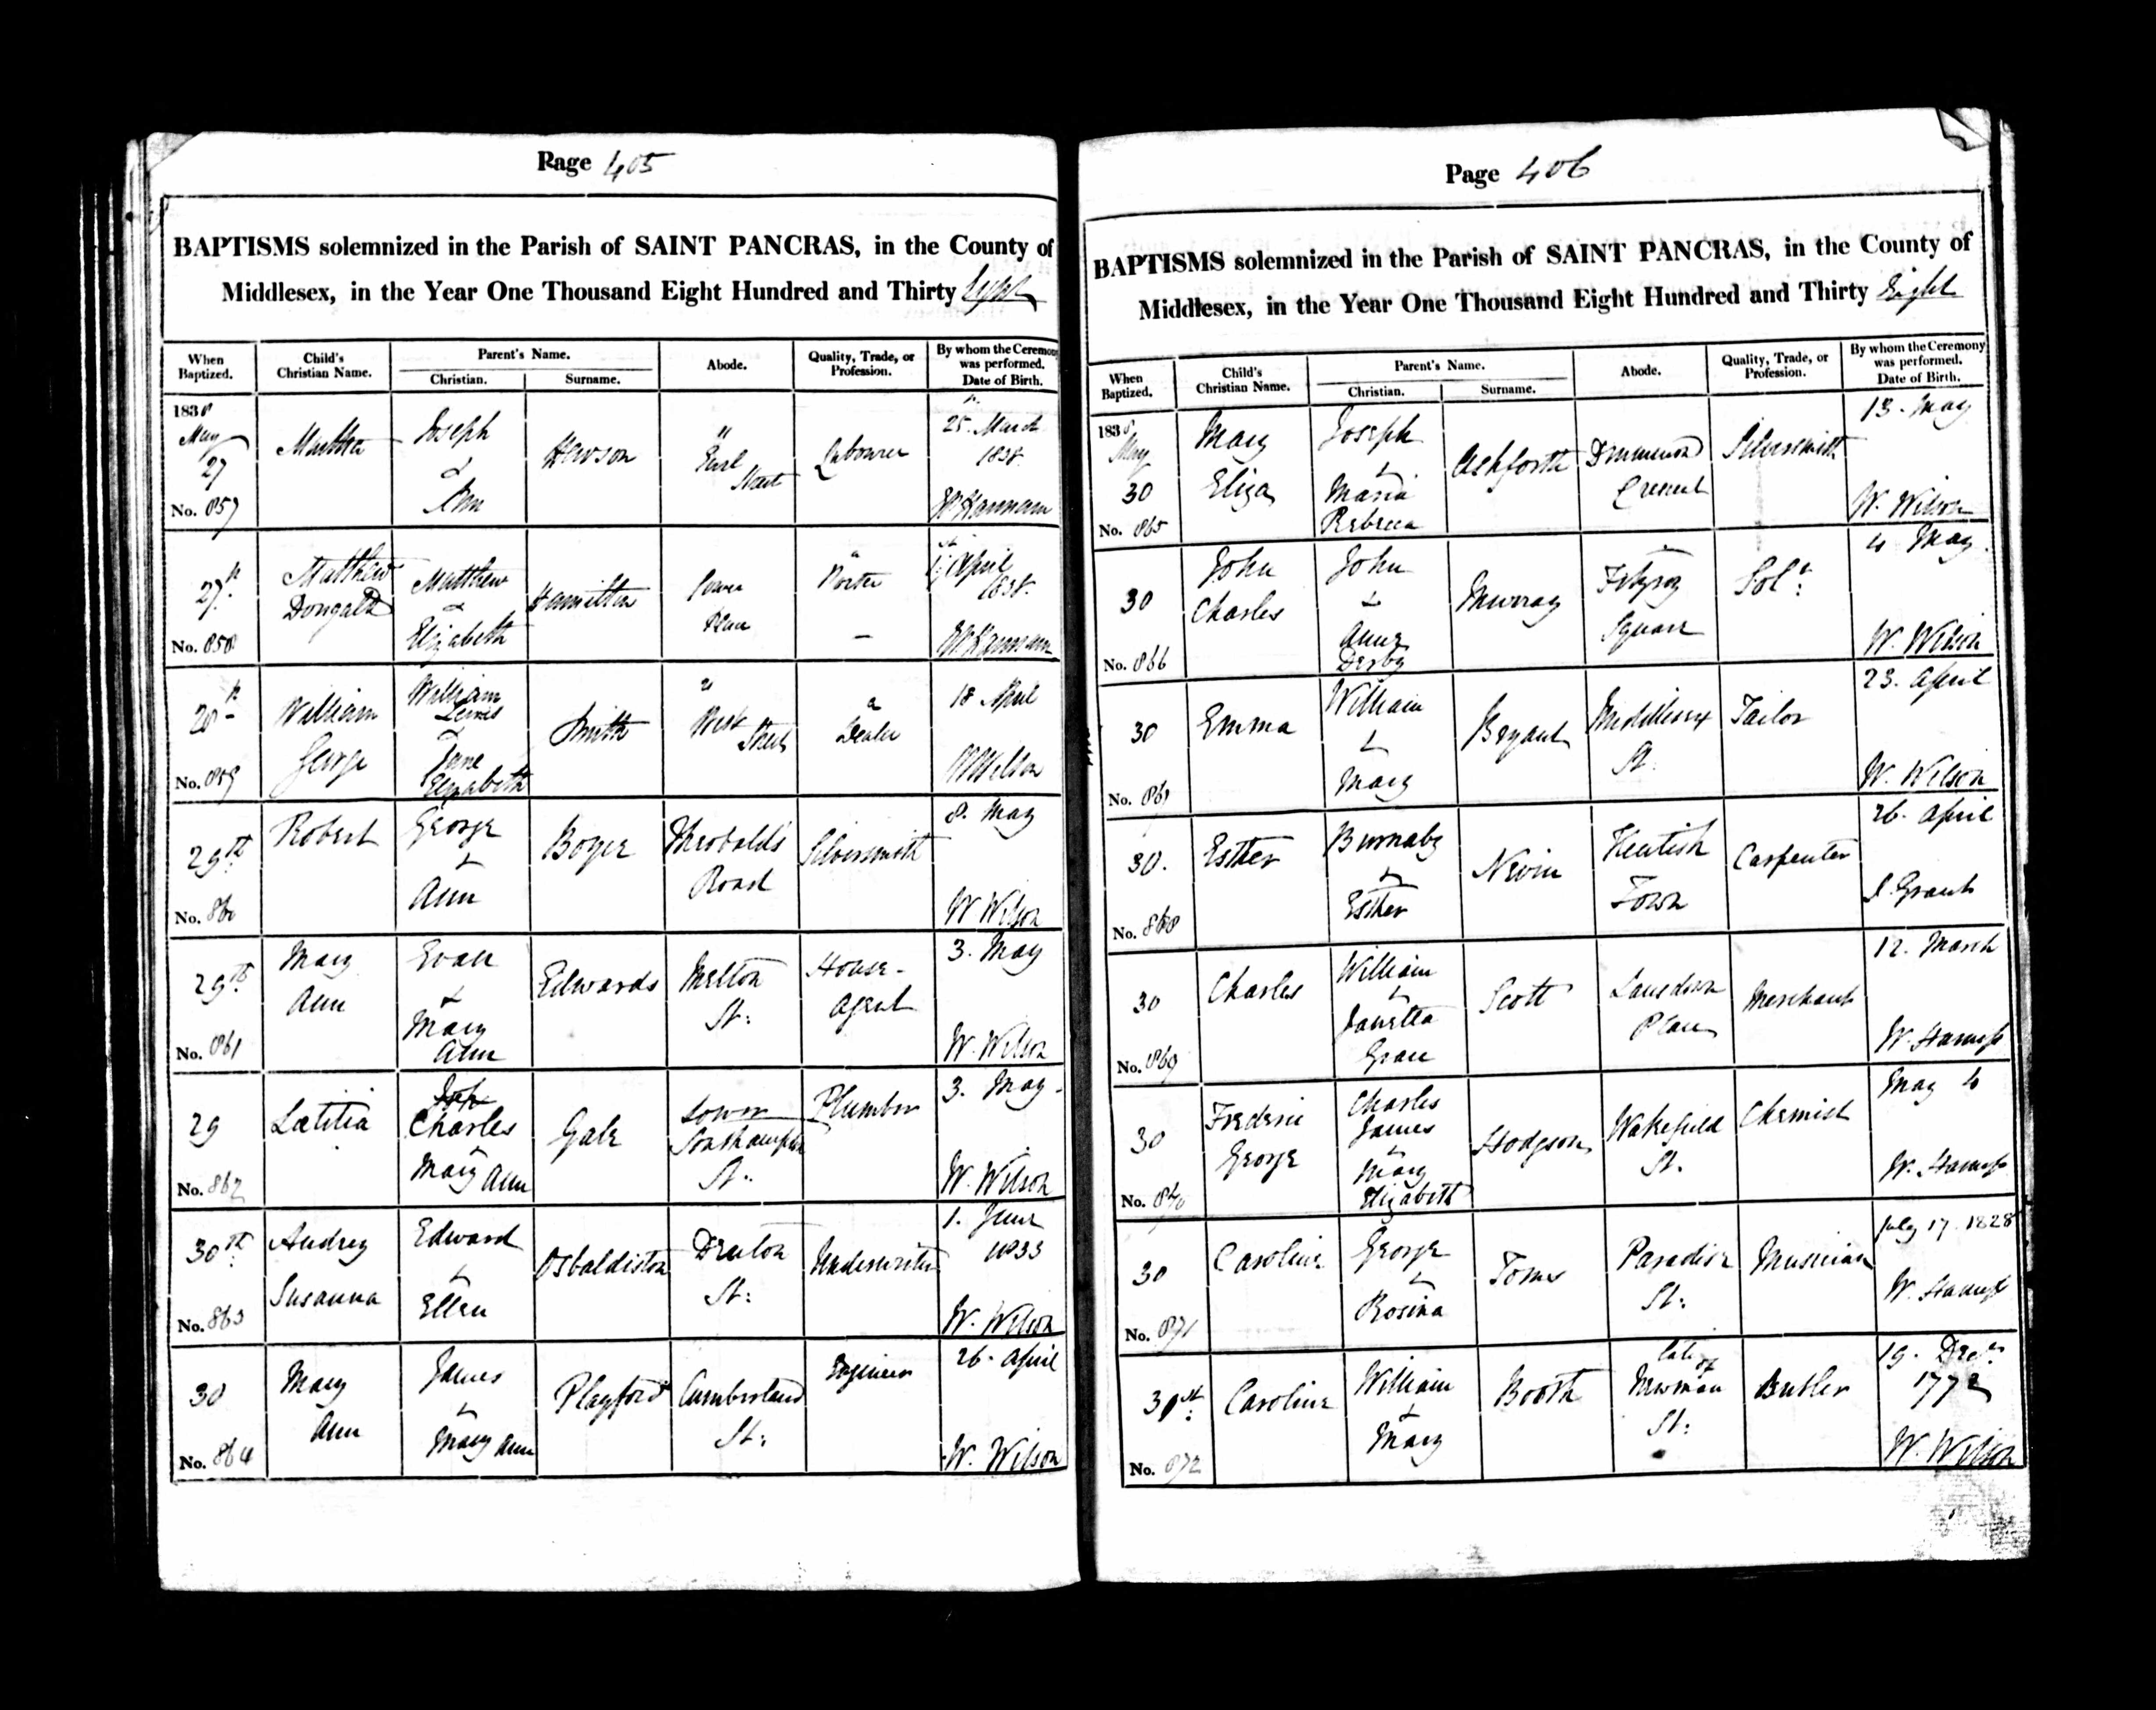 Page 405
BAPTISMS solemnized in the Parish of SAINT PANCRAS, in the County of
Middlesex, in the Year One Thousand Eight Hundred and Thirty Eight
When Baptized. Child's Christian Name. Parent's Name. Christian. Surname. Abode. Quality, Trade, or Profession. By whom the Ceremony was performed. Date of Birth.
1838 May 27 No. 857 Joseph & Ann Hewson Earl Street Labourer 25. March 1838. W Hannam
27th No. 858 Matthew Dongald Matthew & Elizabeth Hamilton Place Porter April 1838. W Hannam
28th No. 859 William George William Lewis & Jane Elizabeth Smith West Street Dealer 18 April W Wilson
29th No. 860 Robert George & Ann Boyer Theobalds Road Silversmith 8. May W Wilson
29th No. 861 Mary Ann Evan & Mary Ann Edwards Melton St: House-Agent 3. May W. Wilson
29 No. 862 Lætitia Charles & Mary Ann Gale Lower Southampton St: Plumber 3. May W. Wilson
30th No. 863 Audrey Susanna Edward & Ellen Osbaldiston St: Underwriter 1. June 1833 W. Wilson
30 No. 864 Mary Ann James & Mary Ann Playford Cumberland St: Engineer 26. April W. Wilson
Page 406
BAPTISMS solemnized in the Parish of SAINT PANCRAS, in the County of
Middlesex, in the Year One Thousand Eight Hundred and Thirty Eight
When Baptized. Child's Christian Name. Parent's Name. Christian. Surname. Abode. Quality, Trade, or Profession. By whom the Ceremony was performed. Date of Birth.
1838 May 30 No. 865 Mary Eliza Joseph & Maria Rebecca Ashforth Drummond Crescent Silversmith 13. May W. Wilson
30 No. 866 John Charles John & Anne Derby Murray Fitzroy Square Solr: 4 May. W. Wilson
30 No. 867 Emma William & Mary Bryant Middlesex St. Tailor 23. April W. Wilson
30. No. 868 Esther Burnaby & Esther Nevin Kentish Town Carpenter 26. April Grant
30 No. 869 Charles William & Janetta Grace Scott Lansdown Place Merchant 12. March W.
30 No. 870 Frederic George Charles James & Mary Elizabeth Hodgson Wakefield St. Chemist May 4 W.
30 No. 871 Caroline George & Rosina Toms Paradise St: Musician July 17. 1828 W.
No. 872 Caroline William & Mary Booth late of Newman St: Butler 19. Decr. 1772 W. Wilson